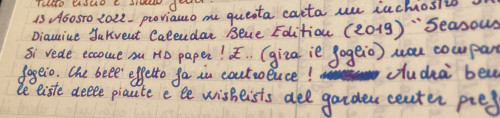 13 Agosto 2022 - proviamo su questa carta un inchiostro
Diamine Inkvent Calendar Blue Edition (2019) "Seasons
Si vede eccome su MD paper! E.. (gira il foglio) non compar
foglio. Che bell'effetto fa in controluce! Andrà ben
le liste delle piante e le wishlists del garden center pref